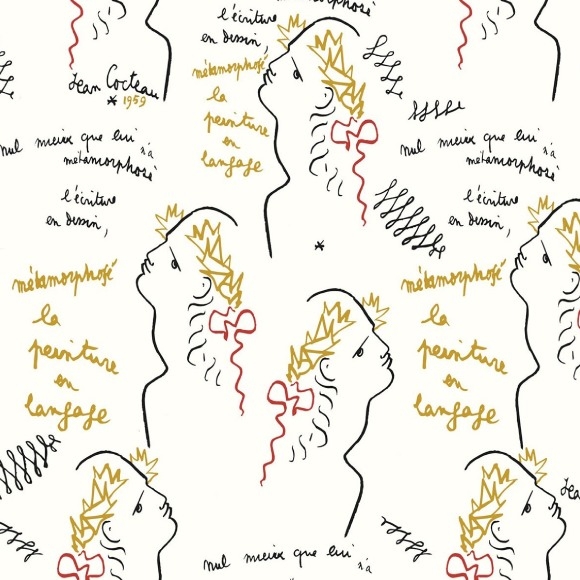 l'écriture
en dessin,
métamorphosé
la
peinture
en
langage
Jean Cocteau
* 1959
nul mieux que lui n'a
métamorphosé
l'écriture
en dessin,
métamorphosé
la
peinture
en
langage
nul mieux que lui n'a
métamorphosé
l'écriture
en dessin,
métamorphosé
la
peinture
en
langage
nul mieux que lui n'a